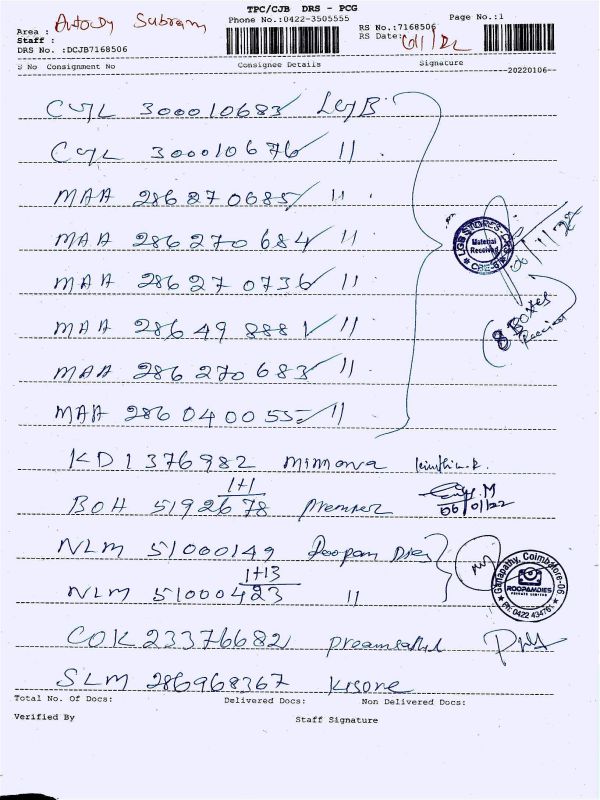 TPC/CJB DRS - PCG
Phone No.:0422-3505555
Page No.:1
Area :
Subram
Staff :
RS No.:7168506
RS Date:
DRS No. :DCJB7168506
S No Consignment No
Consignee Details
Signature
20220106
CUJL 300010683 LGB
CUJL 300010676 11
MAA 286 870685 11
MAA 286270 684 11
MAA 286270736 11
MAA 28649 8881 11
MAA 286 270 683 11
MAA 286 0400 55 11
LGB STORES
Material
Received
8 Boxes
Received
KD1376982 minnova
1+1
BOH 5192678 Premier
06/01/22
NLM 51000149 Roopam Dies
1+13
NLM 51000423 11
Ganapathy, Coimbatore-06
ROOPAMDIES
PRIVATE LIMITED
COK 233766821
SLM 286968367 Kisore
Total No. Of Docs:
Delivered Docs:
Non Delivered Docs:
Verified By
Staff Signature